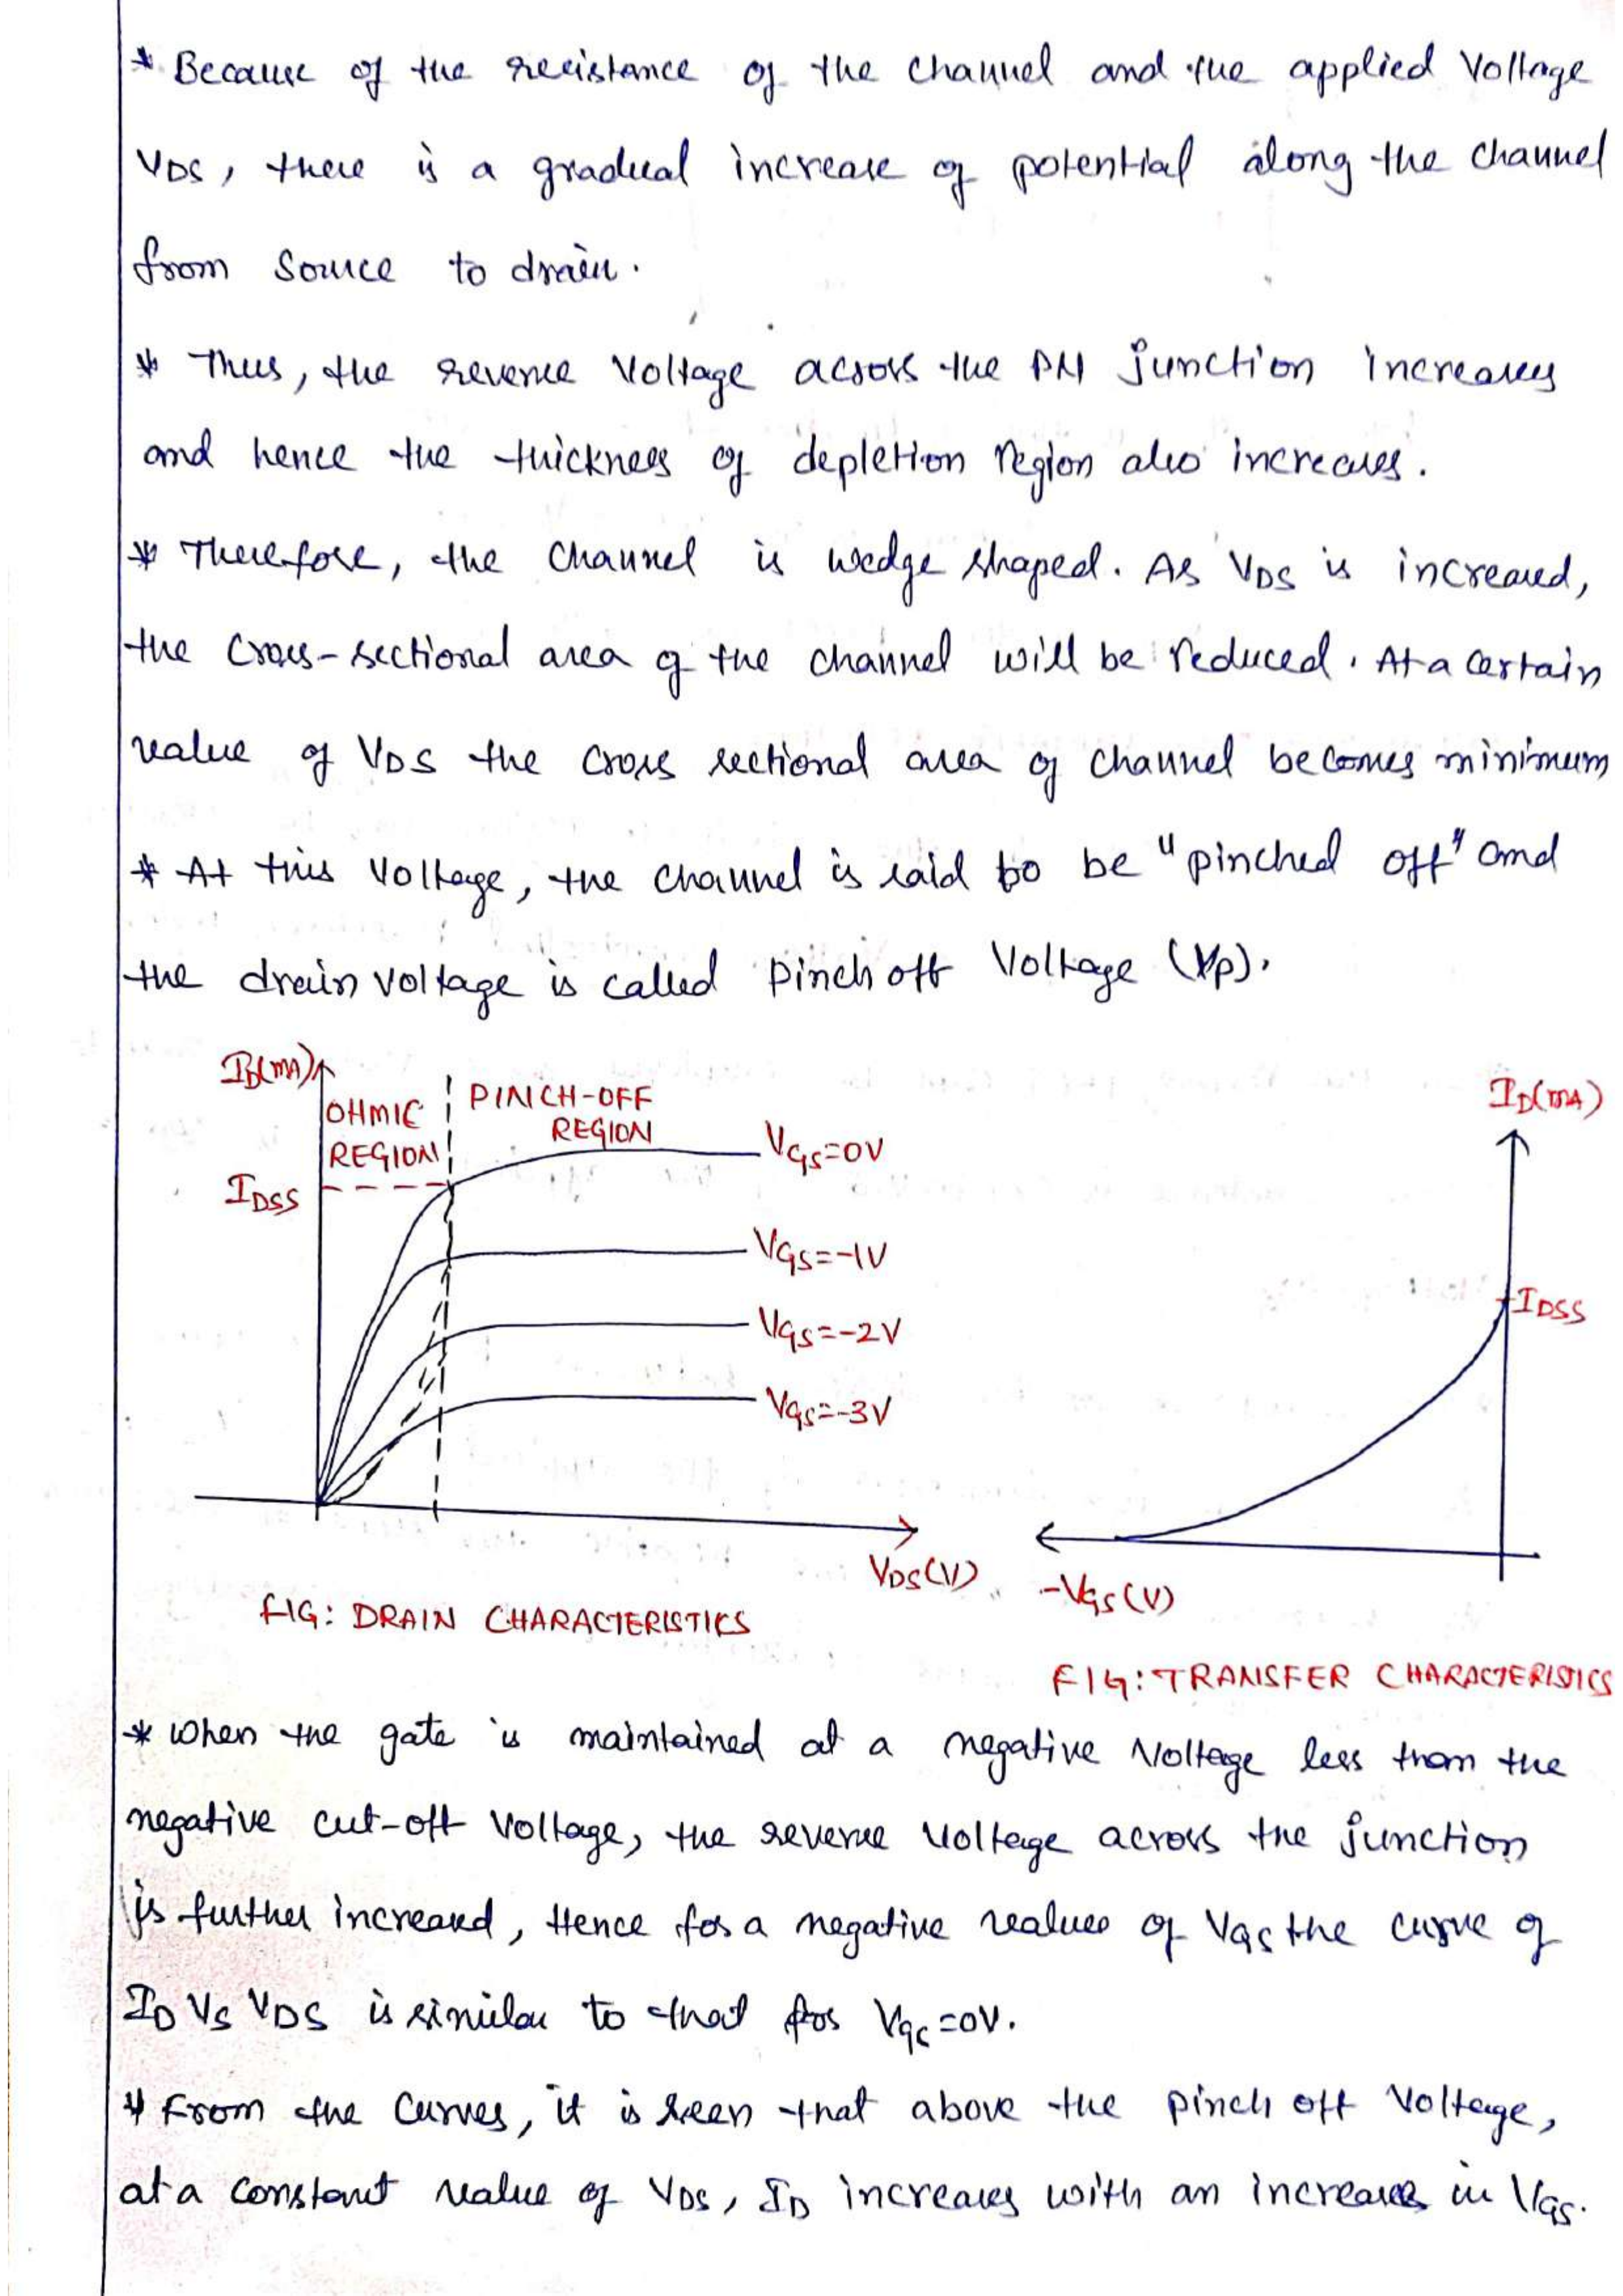 * Because of the resistance of the channel and the applied Voltage
VDS, there is a gradual increase of potential along the channel
from source to drain.
* Thus, the reverse Voltage across the PN junction increases
and hence the thickness of depletion region also increases.
* Therefore, the channel is wedge shaped. As VDS is increased,
the cross-sectional area of the channel will be reduced. At a certain
value of VDS the cross sectional area of channel becomes minimum
* At this Voltage, the channel is said to be "pinched off" and
the drain voltage is called pinch off Voltage (Vp).
ID(mA)
OHMIC REGION
PINCH-OFF REGION
VGS=0V
IDSS
VGS=-1V
VGS=-2V
VGS=-3V
VDS(V)
FIG: DRAIN CHARACTERISTICS
ID(mA)
IDSS
-VGS(V)
FIG: TRANSFER CHARACTERISTICS
* When the gate is maintained at a negative Voltage less than the
negative cut-off Voltage, the reverse Voltage across the junction
is further increased, Hence for a negative values of VGS the curve of
ID VS VDS is similar to that for VGS=0V.
* From the curves, it is seen that above the pinch off Voltage,
at a constant value of VDS, ID increases with an increase in VGS.